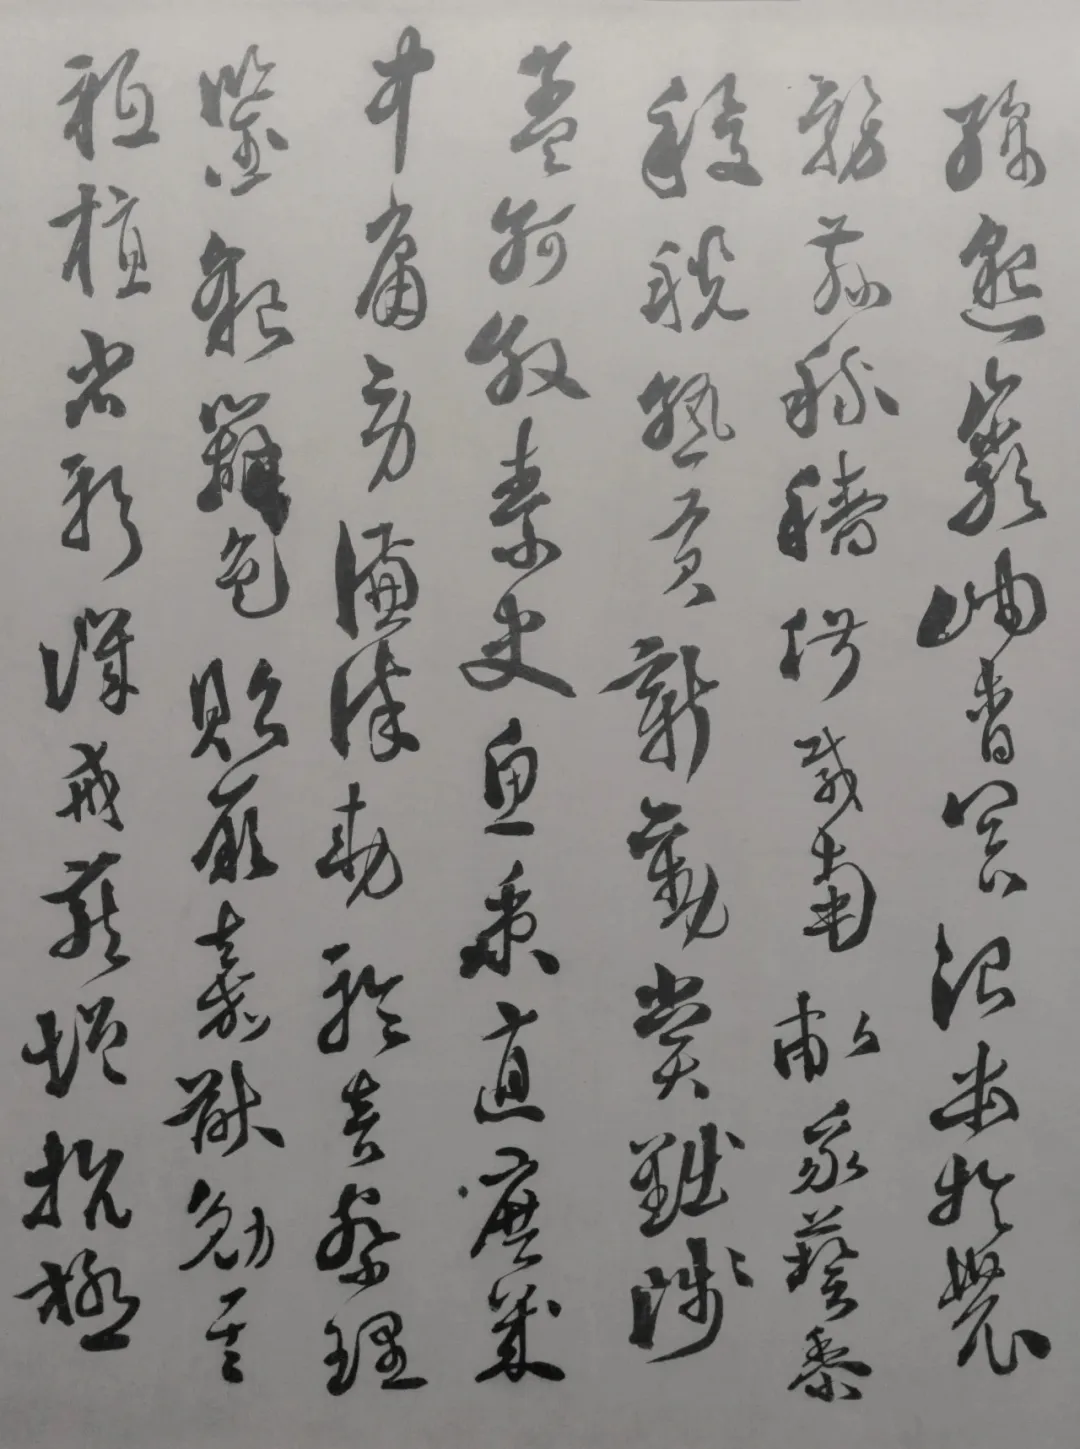 綿邈巖岫杳冥治本於農
務茲稼穡俶載南畝我藝黍
稷稅熟貢新勸賞黜陟
孟軻敦素史魚秉直庶幾
中庸勞謙謹敕聆音察理
鑒貌辨色貽厥嘉猷勉其
祗植省躬譏誡寵增抗極